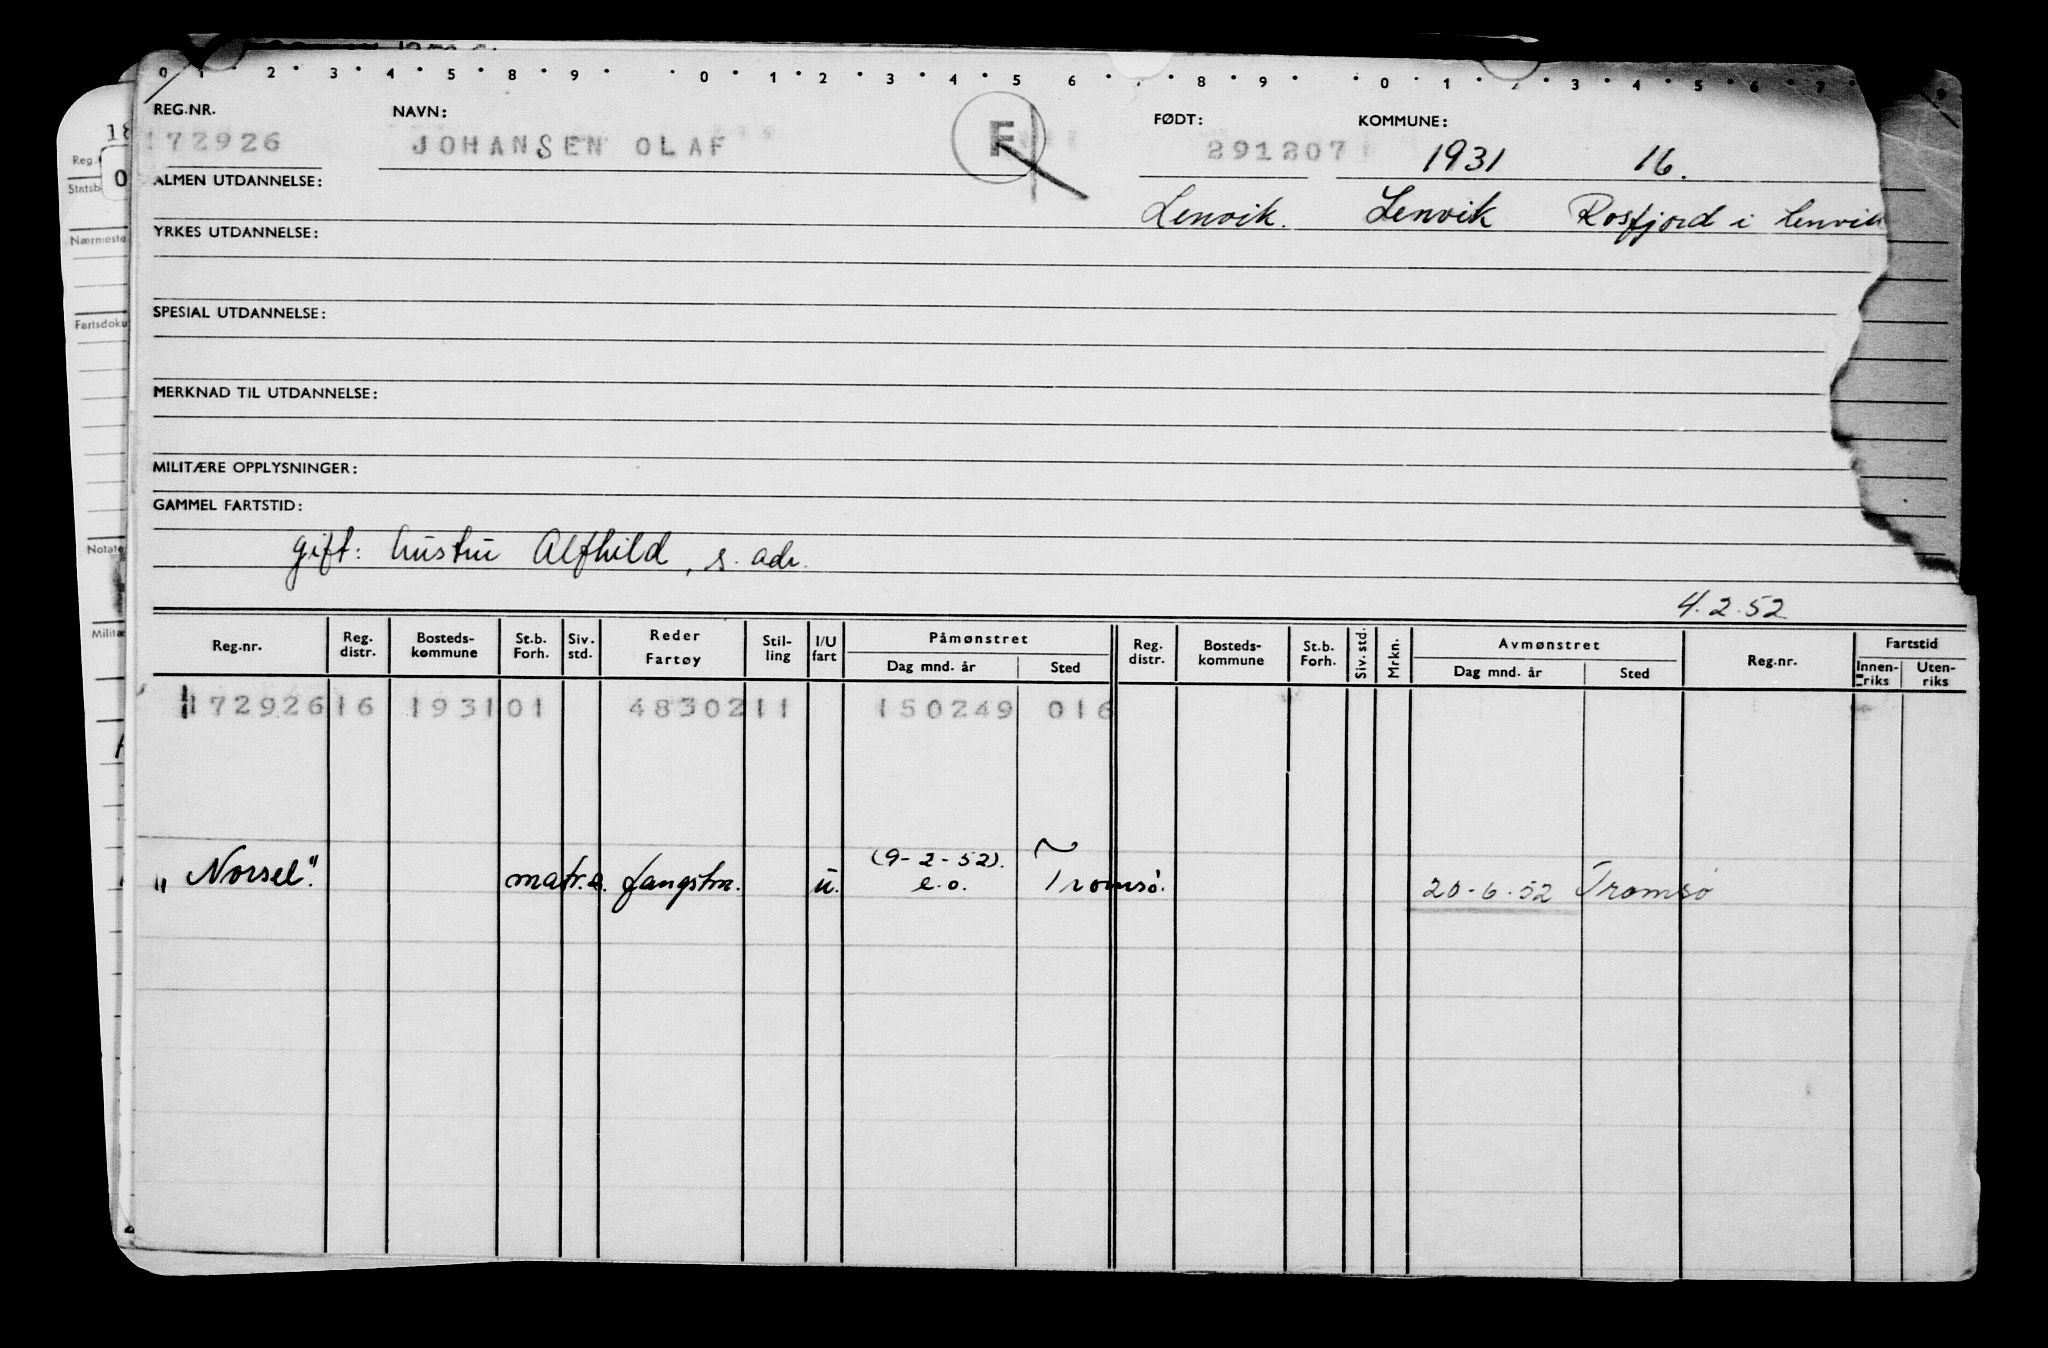 0 1 2 3 4 5 8 9 0 1 2 3 4 5 6 8 9 0 1 3 4 5 6 7 9
REG.NR. NAVN: FØDT: KOMMUNE:
172926 JOHANSEN OLAF F 291207 1931 16.
Lenvik. Lenvik Rosfjord i Lenvik
ALMEN UTDANNELSE:
YRKES UTDANNELSE:
SPESIAL UTDANNELSE:
MERKNAD TIL UTDANNELSE:
MILITÆRE OPPLYSNINGER:
GAMMEL FARTSTID:
gift: hustru Alfhild, s. adr.
4.2.52
Reg.nr. Reg. distr. Bosteds-kommune St.b. Forh. Siv. std. Reder Fartøy Stil-ling I/U fart Påmønstret Dag mnd. år Sted Reg. distr. Bosteds-kommune St.b. Forh. Siv. std. Mrkn. Avmønstret Dag mnd. år Sted Reg.nr. Fartstid Innen-riks Uten-riks
172926 16 1931 01 48302 11 150249 016
(9-2-52).
"Norsel". matr. fangstm. u. e.o. Tromsø. 20-6-52 Tromsø
18
Reg.
Statsb
0
Nærmeste
Fartsdoku
Notate
Militæ